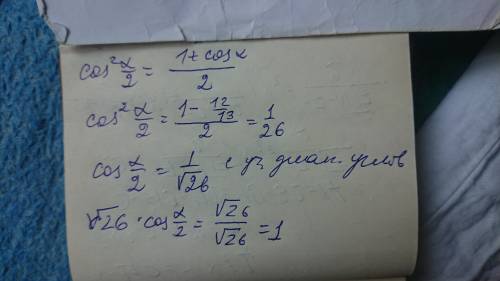 cos² α/2 = (1 + cos α)/2
cos² α/2 = (1 - 12/13)/2 = 1/26
cos α/2 = 1/√26 с уч. диап. углов
√26 · cos α/2 = √26/√26 = 1